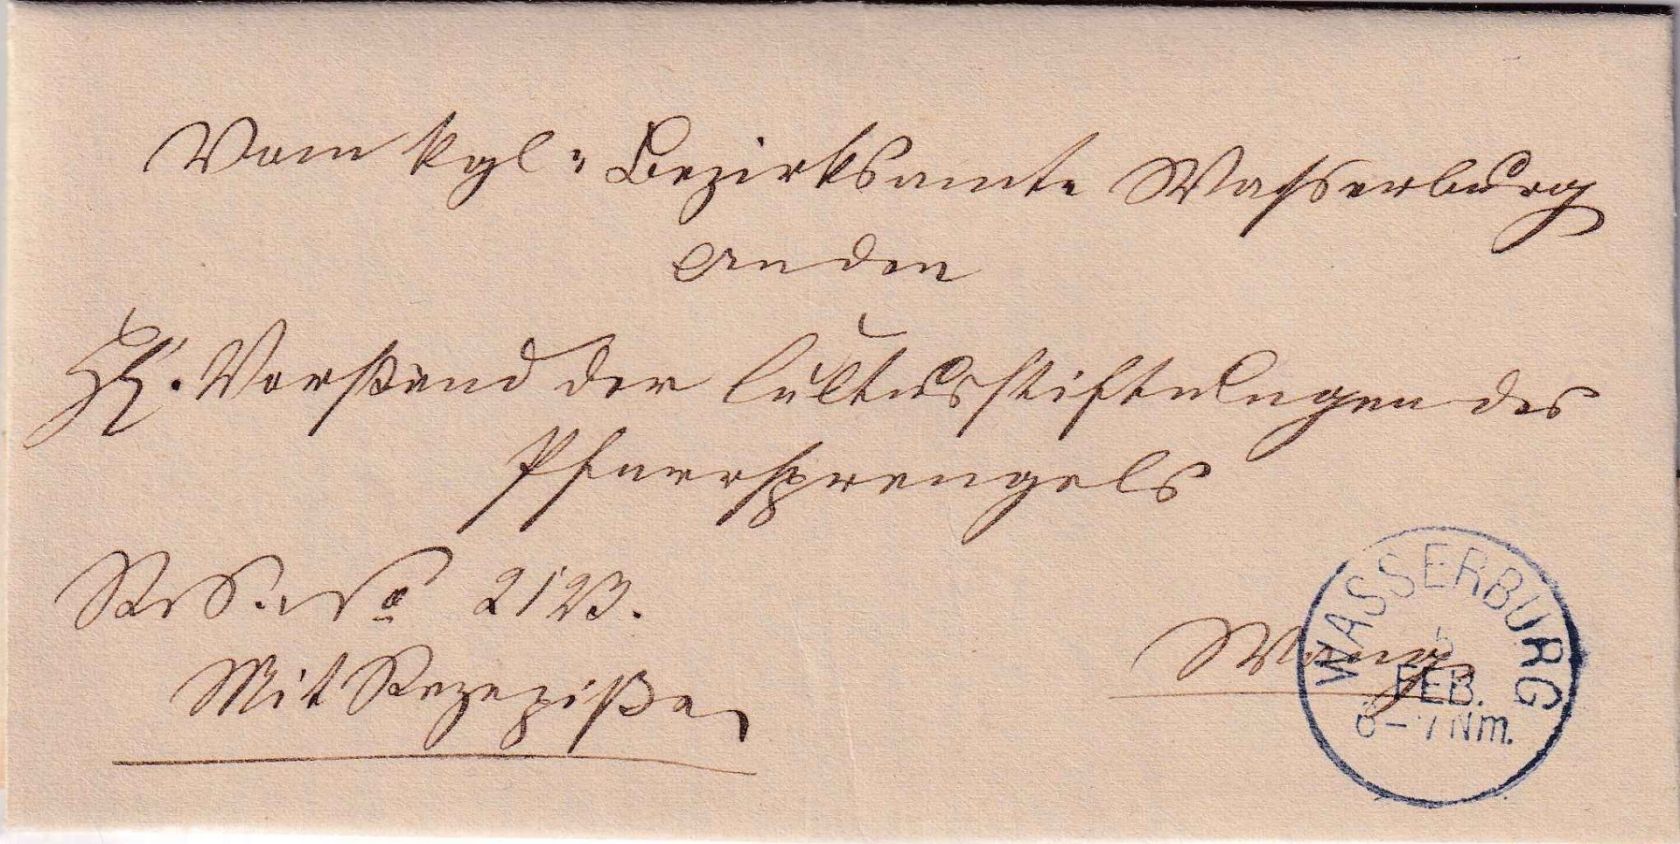 Vom kgl. Bezirksamte Wasserburg
an den
Vorstand der Cultusstiftungen des
Pfarrsprengels
No 2123.
Wang
Mit Rezepisse
WASSERBURG
5
FEB.
6-7 Nm.